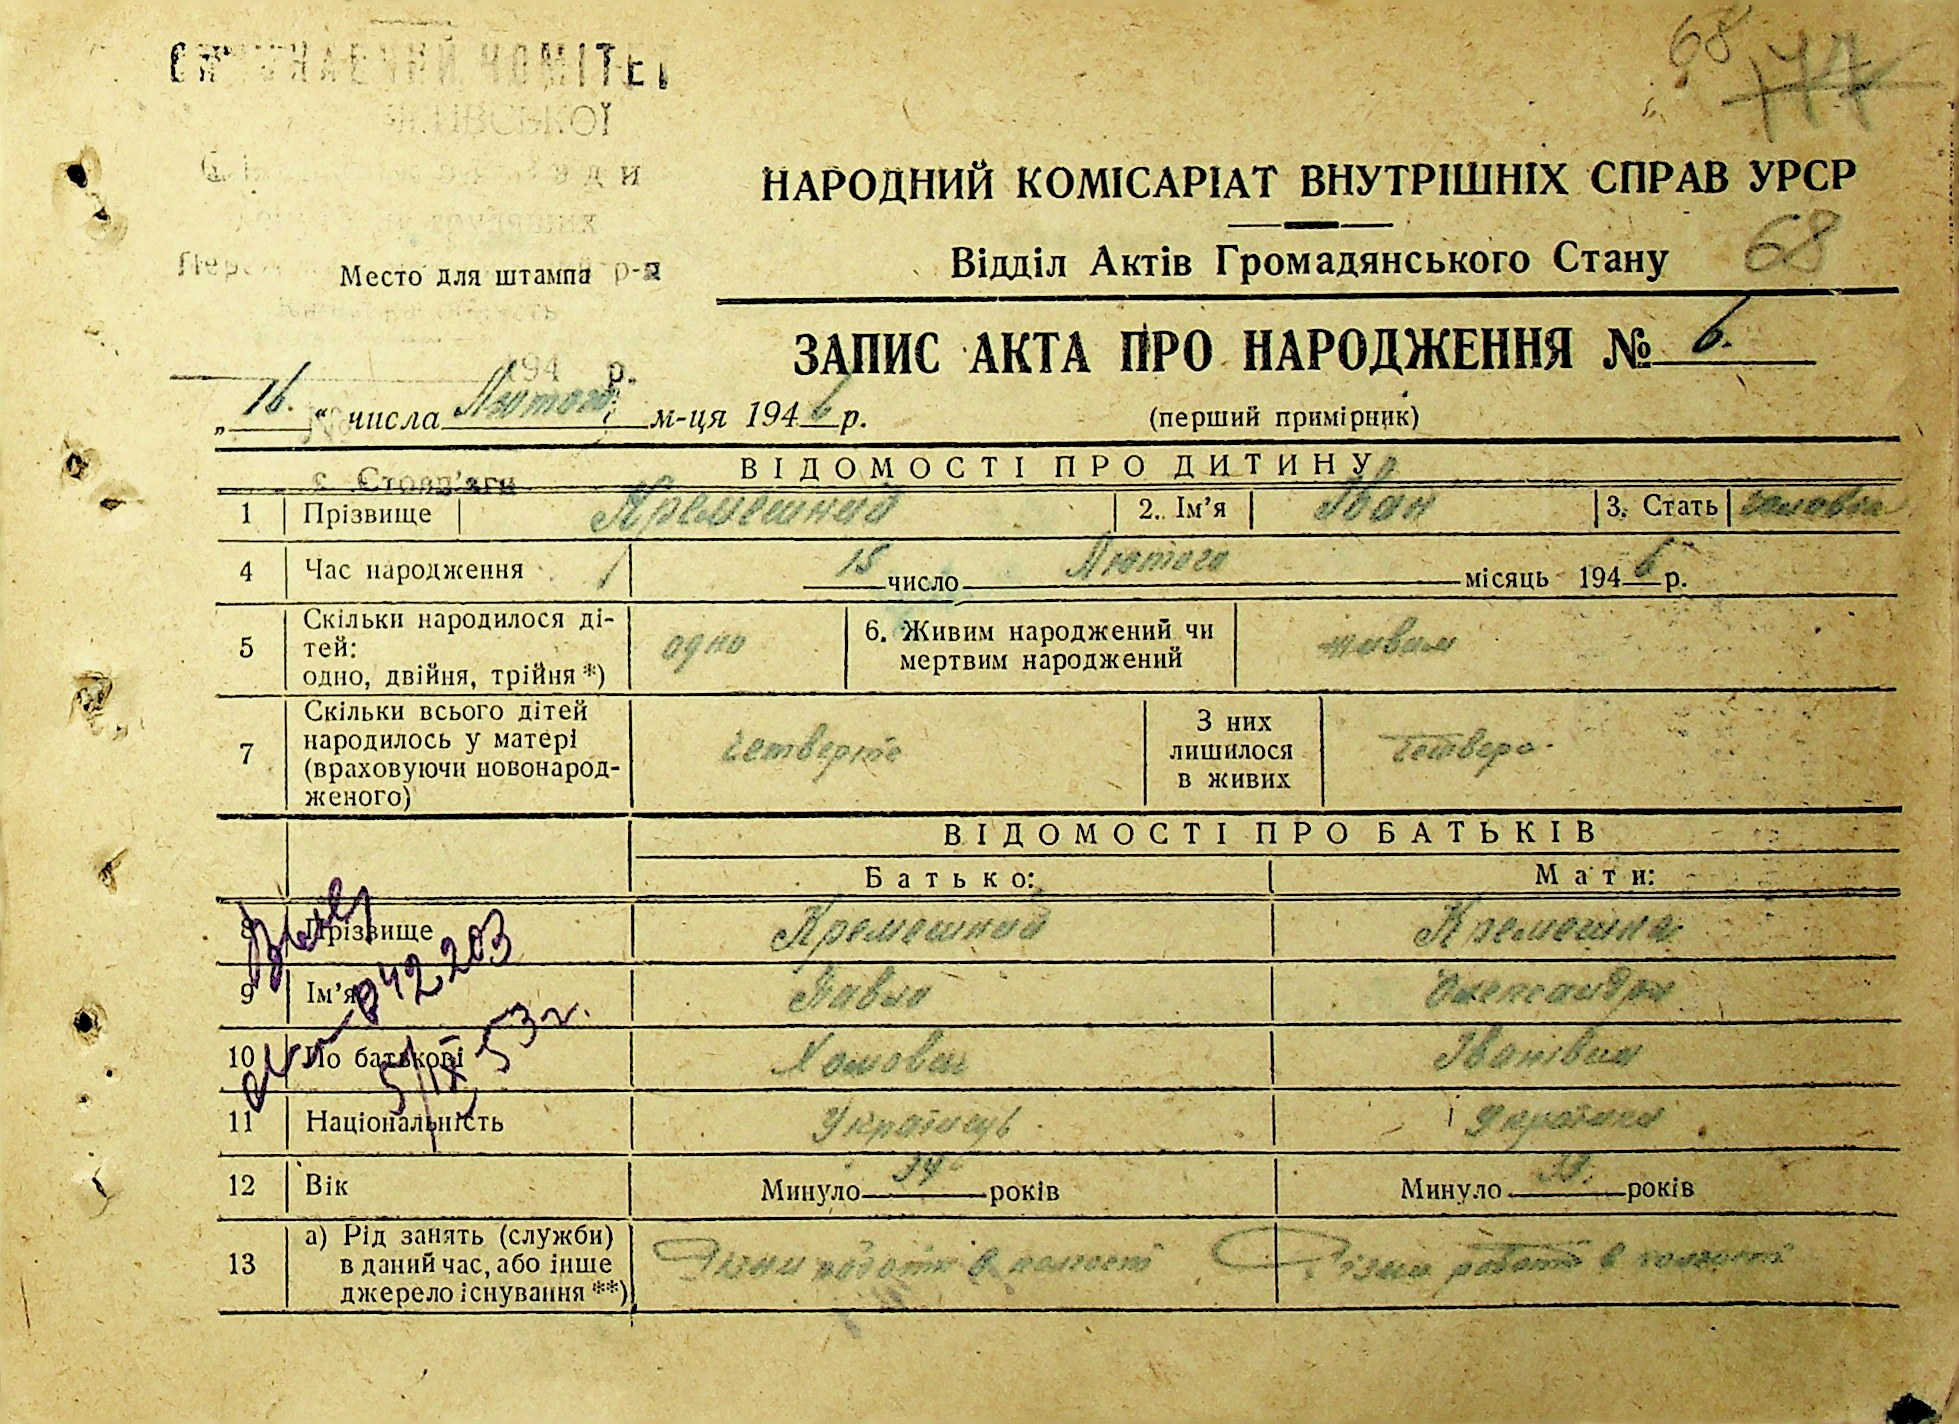 68 77
КОМІТЕТ
Место для штампа р-н
194 р.
с. Стовп'яги
НАРОДНИЙ КОМІСАРІАТ ВНУТРІШНІХ СПРАВ УРСР
Відділ Актів Громадянського Стану 68
ЗАПИС АКТА ПРО НАРОДЖЕННЯ № 6.
„ 16. “ числа Лютого м-ця 1946 р. (перший примірник)
ВІДОМОСТІ ПРО ДИТИНУ
1 Прізвище Кремешний 2. Ім’я Іван 3. Стать чоловіча
4 Час народження 15 число Лютого місяць 1946 р.
5 Скільки народилося ді-
тей:
одно, двійня, трійня *) одно 6. Живим народжений чи
мертвим народжений живим
7 Скільки всього дітей
народилось у матері
(враховуючи новонарод-
женого) четверте З них
лишилося
в живих четверо.
ВІДОМОСТІ ПРО БАТЬКІВ
Батько: Мати:
8 Прізвище Кремешний Кремешна
9 Ім’я Павло Олександра
10 По батькові Хомович Іванівна
11 Національність Українець Українка
12 Вік Минуло 34 років Минуло років
13 а) Рід занять (служби)
в даний час, або інше
джерело існування **) Різни роботи в колгоспі Різни роботи в колгоспі
042203
5/IX 53 г.